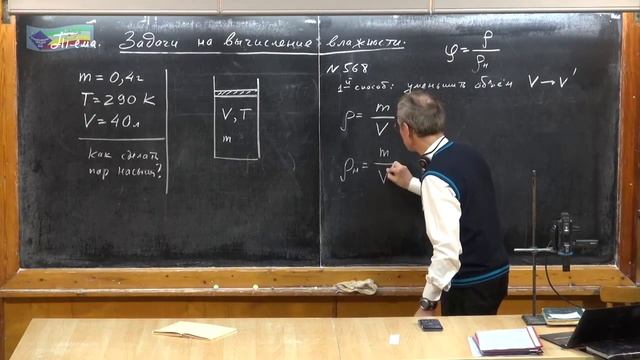 Тема. Задачи на вычисление влажности.
φ = ρ / ρн
m = 0,4г
T = 290 K
V = 40л
Как сделать
пар насыщ?
V, T
m
N 568
1й способ: уменьшить объём V → V'
ρ = m / V
ρн = m / V